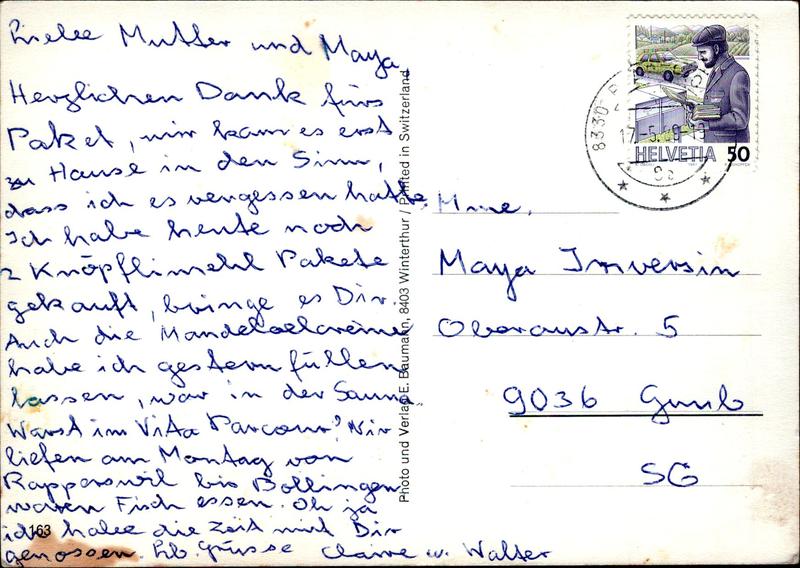 Liebe Mutter und Maya
Herzlichen Dank fürs
Paket, mir kam es erst
zu Hause in den Sinn,
dass ich es vergessen hatte.
Ich habe heute noch
2 Knöpflimehl Pakete
gekauft, bringe es Dir.
Auch die Mandeloelcreme
habe ich gestern füllen
lassen, war in der Sauna
Warst im Vita Parcour? Wir
liefen am Montag von
Rapperswil bis Bollingen
waren Fisch essen. Oh ja
ich habe die Zeit mit Dir
genossen. Lb. Grüsse Claire u. Walter
163
Photo und Verlag E. Baumann, 8403 Winterthur / Printed in Switzerland
8330
17.-5.
HELVETIA 50
Mme.
Maya Imversin
Oberaustr. 5
9036 Grub
SG